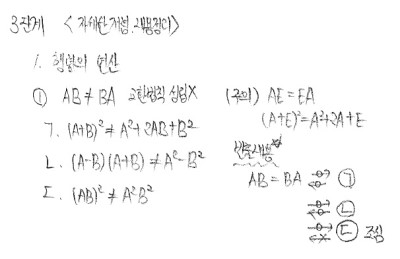 3단계 <자세한 개념, 내용정리>
1. 행렬의 연산
① AB ≠ BA 교환법칙 성립X
ㄱ. (A+B)² ≠ A²+2AB+B²
ㄴ. (A-B)(A+B) ≠ A²-B²
ㄷ. (AB)² ≠ A²B²
(주의) AE = EA
(A+E)² = A²+2A+E
AB = BA ㄱ
ㄴ
ㄷ 조심